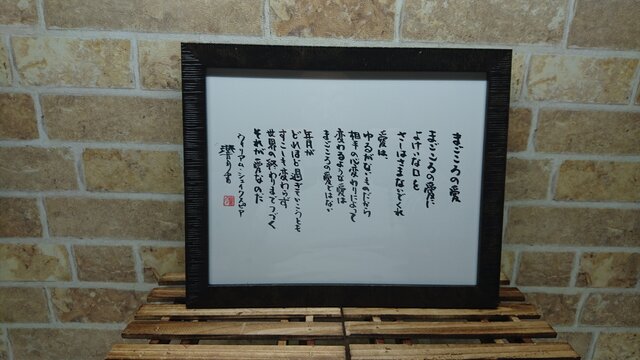 まごころの愛
まごころの愛に
よけいな口を
さしはさまないでくれ
愛は、
ゆるがないものだから
相手の心変わりによって
変わるような愛は
まごころの愛ではない
年月が
どれほど過ぎていこうとも
すこしも変わらず
世界の終わりまでつづく
それが愛なのだ
ウィリアム・シェイクスピア